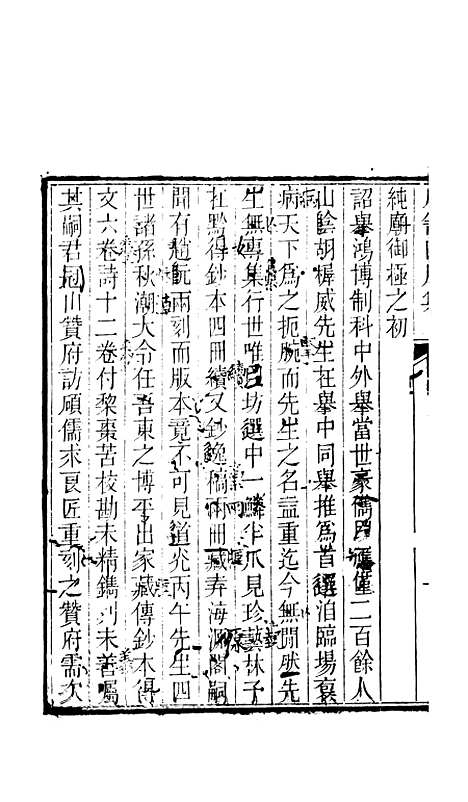 純廟御極之初
詔舉鴻博制科中外舉當世豪儁用薦僅二百餘人
山陰胡樨威先生在舉中同舉推爲首選洎臨場裒
病天下爲之扼腕而先生之名益重迄今無閒然先
生無專集行世唯坊選中一鱗半爪見珍藝林子
在黔得鈔本四冊續又鈔逸稿兩冊藏弆海源閣嗣
聞有趙阮兩刻而版本竟不可見道光丙午先生四
世諸孫秋潮大令任吾東之博平出家藏傳鈔本得
文六卷詩十二卷付棃棗苦校勘未精鐫刋未善屬
其嗣君冠山贊府訪碩儒求良匠重刻之贊府需次